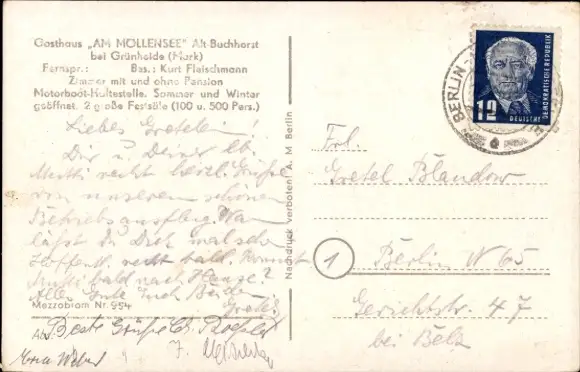 Gasthaus „AM MÖLLENSEE" Alt Buchhorst
bei Grünheide (Mark)
Fernspr.: Bes.: Kurt Fleischmann
Zimmer mit und ohne Pension
Motorboot-Haltestelle. Sommer und Winter
geöffnet. 2 große Festsäle (100 u. 500 Pers.)
Liebes Gretelein!
Dir u. Deiner lb.
Mutti recht herzl. Grüße
von unserem schönen
Betriebsausflug. Wann
läßt Du Dich mal sehen
Hoffentl. recht bald. Kommt
Mutti bald nach Hause?
Alles Gute Euch Beiden
Mezzobiom Nr. 954
Abs:
Beste Grüße
Nachdruck verboten A. M. Berlin
BERLIN
12
DEUTSCHE
DEMOKRATISCHE REPUBLIK
Frl.
Gretel Blandow
1
Berlin N 65
Gerichtstr. 47
bei Belz